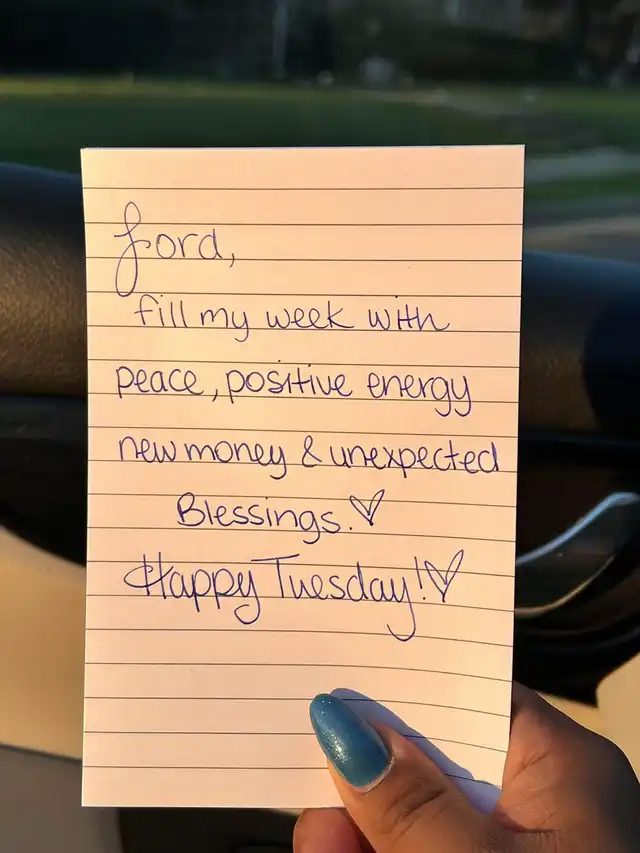 Lord,
fill my week with
peace, positive energy
new money & unexpected
Blessings.♡
Happy Tuesday!♡